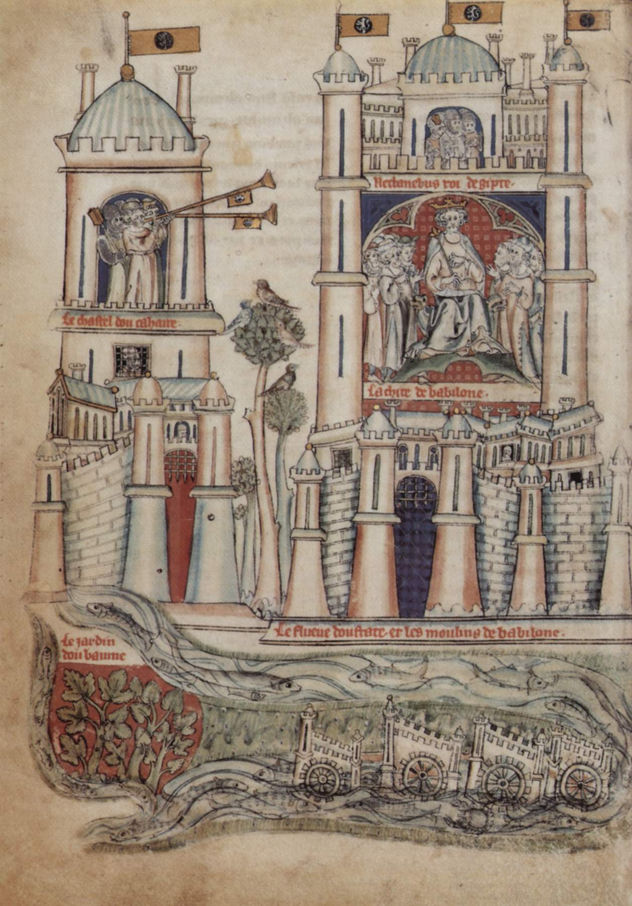 Nectanebus roi degipte.
Le chastel dou cahaire.
La cite de babilone.
Le flueue doufrate et les moulins de babilone.
Le jardin
dou baume